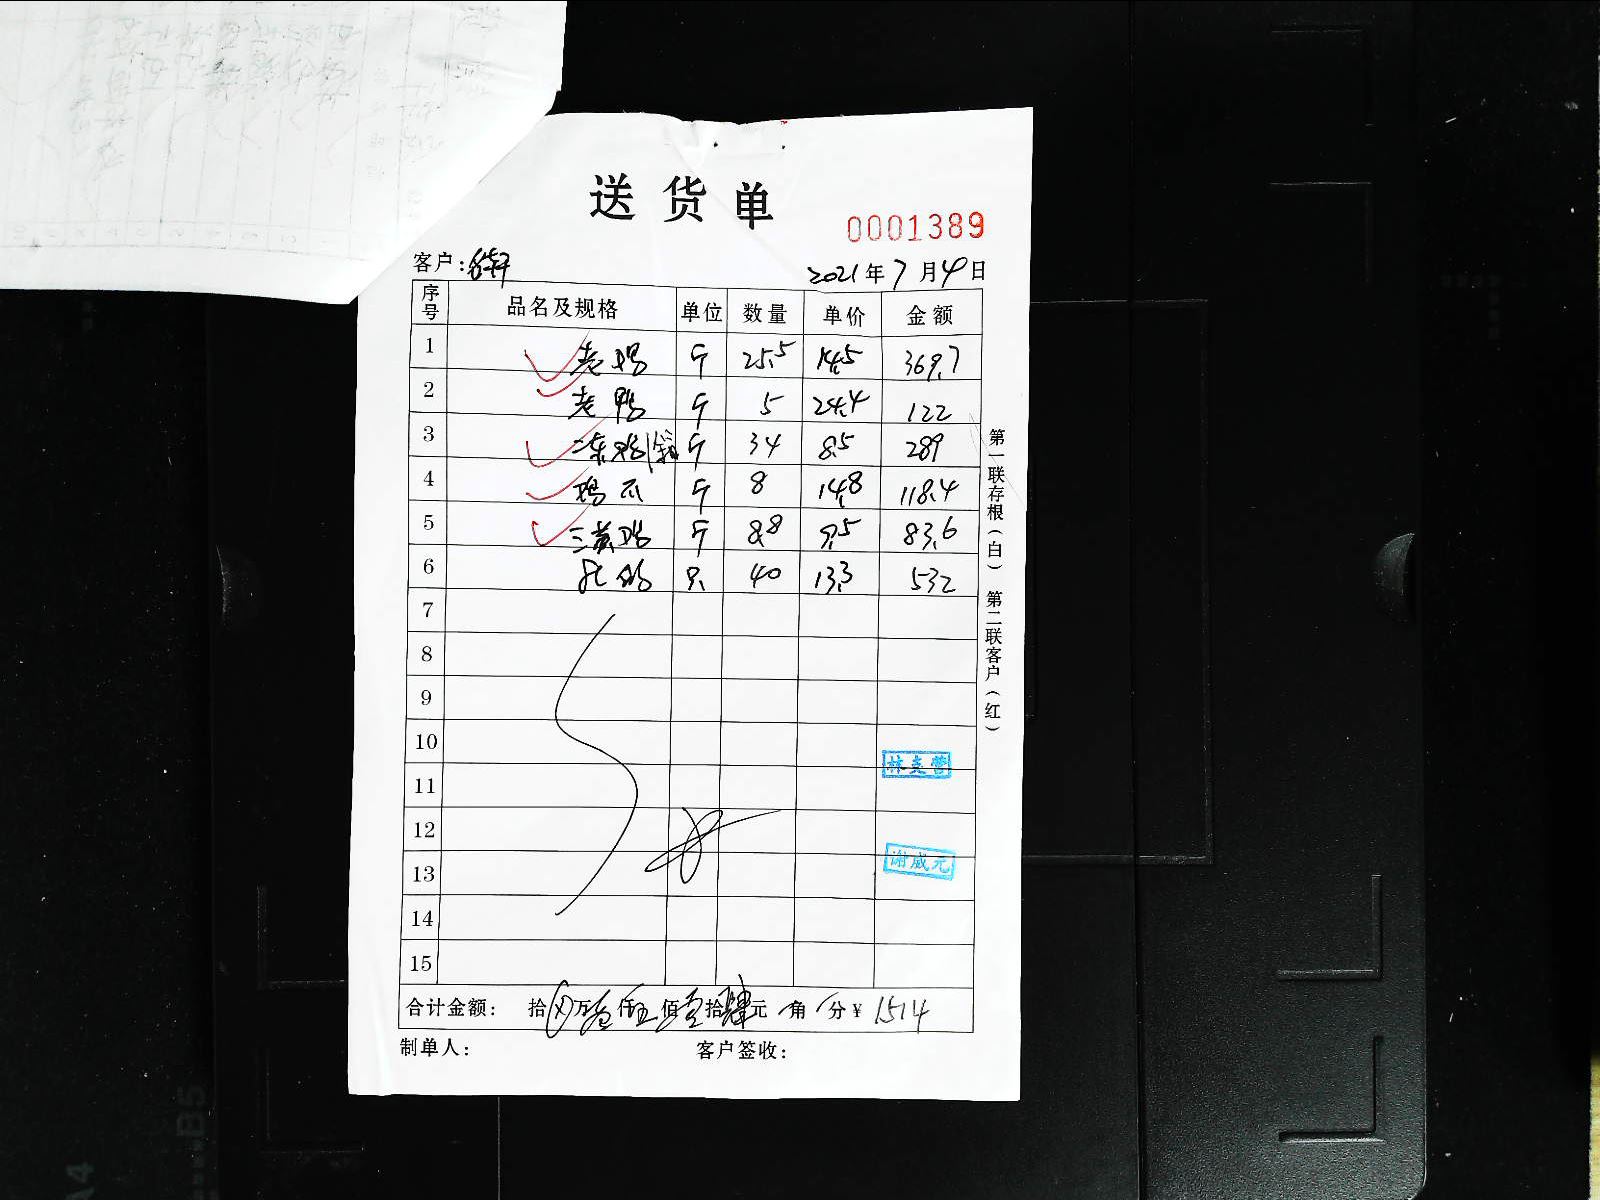 送货单
0001389
客户:
2021年7月4日
序号 品名及规格 单位 数量 单价 金额
1 老鸡 斤 25.5 14.5 369.7
2 老鸭 斤 5 24.4 122
3 冻鸡 斤 34 8.5 289
4 鸡爪 斤 8 14.8 118.4
5 三黄鸡 斤 8.8 9.5 83.6
6 乳鸽 只 40 13.3 532
7
8
9
10
11
12
13
14
15
林尧营
谢咸元
合计金额: 拾 万壹仟伍佰壹拾肆元 角 分¥ 1514
制单人: 客户签收:
第一联存根(白) 第二联客户(红)
B5
A4